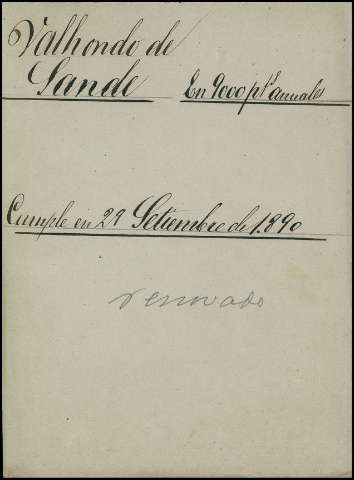 Valhondo de
Sande
En 9000 pts anuales
Cumple en 29 Setiembre de 1890
renovado